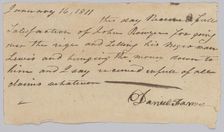 January 16, 1811
this day Received full
satisfaction of John Rouzee for going
over the and Letting his Negro man
Lewis and bringing the down to
him and I say received in full of all
claims whatever
Daniel